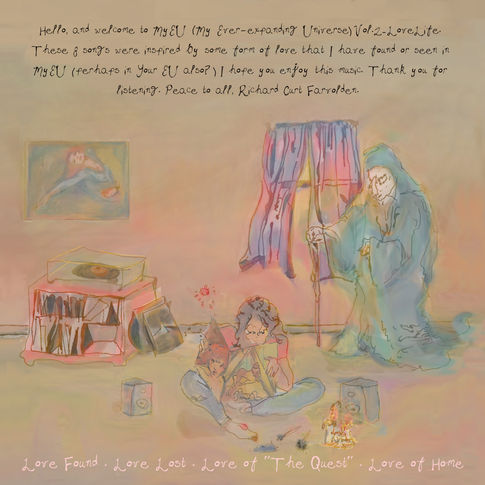 Hello, and welcome to MyEU (My Ever-expanding Universe) Vol:2-LoveLife.
These 8 songs were inspired by some form of love that I have found or seen in
MyEU (perhaps in your EU also?) I hope you enjoy this music. Thank you for
listening. Peace to all, Richard Curt Farvolden.
Love Found . Love Lost . Love of "The Quest" . Love of Home